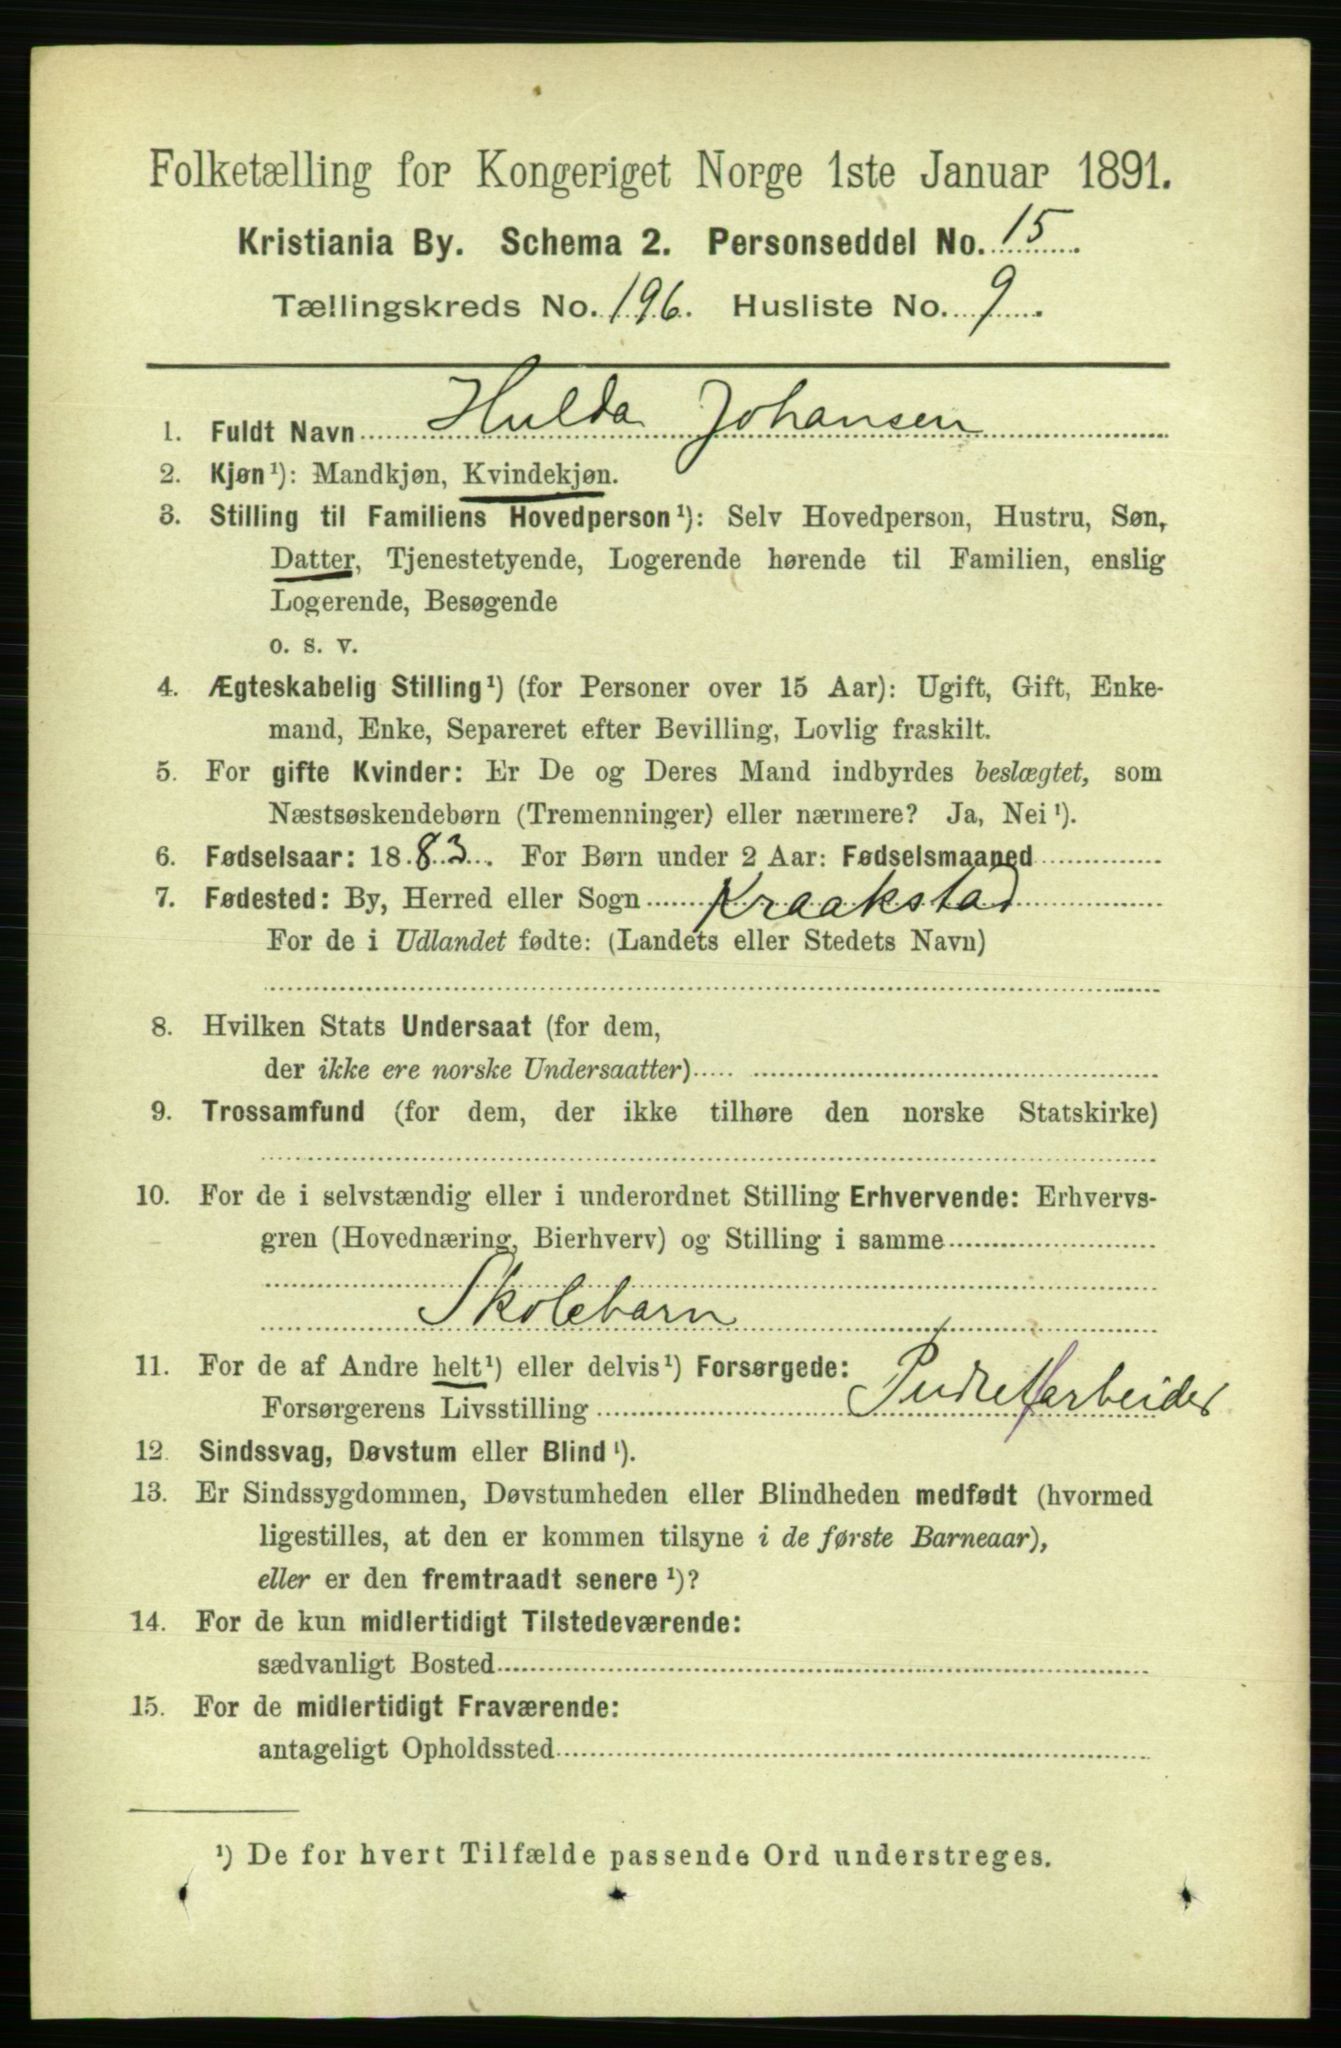 Folketælling for Kongeriget Norge 1ste Januar 1891.
Kristiania By. Schema 2. Personseddel No. 15
Tællingskreds No. 196. Husliste No. 9
1. Fuldt Navn Hulda Johansen
2. Kjøn¹): Mandkjøn, Kvindekjøn.
3. Stilling til Familiens Hovedperson¹): Selv Hovedperson, Hustru, Søn,
Datter, Tjenestetyende, Logerende hørende til Familien, enslig
Logerende, Besøgende
o. s. v.
4. Ægteskabelig Stilling¹) (for Personer over 15 Aar): Ugift, Gift, Enke-
mand, Enke, Separeret efter Bevilling, Lovlig fraskilt.
5. For gifte Kvinder: Er De og Deres Mand indbyrdes beslægtet, som
Næstsøskendebørn (Tremenninger) eller nærmere? Ja, Nei¹).
6. Fødselsaar: 1883. For Børn under 2 Aar: Fødselsmaaned
7. Fødested: By, Herred eller Sogn Kraakstad
For de i Udlandet fødte: (Landets eller Stedets Navn)
8. Hvilken Stats Undersaat (for dem,
der ikke ere norske Undersaatter)
9. Trossamfund (for dem, der ikke tilhøre den norske Statskirke)
10. For de i selvstændig eller i underordnet Stilling Erhvervende: Erhvervs-
gren (Hovednæring, Bierhverv) og Stilling i samme
Skolebarn
11. For de af Andre helt¹) eller delvis¹) Forsørgede:
Forsørgerens Livsstilling Pudretfarbeider
12. Sindssvag, Døvstum eller Blind¹).
13. Er Sindssygdommen, Døvstumheden eller Blindheden medfødt (hvormed
ligestilles, at den er kommen tilsyne i de første Barneaar),
eller er den fremtraadt senere¹)?
14. For de kun midlertidigt Tilstedeværende:
sædvanligt Bosted
15. For de midlertidigt Fraværende:
antageligt Opholdssted
¹) De for hvert Tilfælde passende Ord understreges.